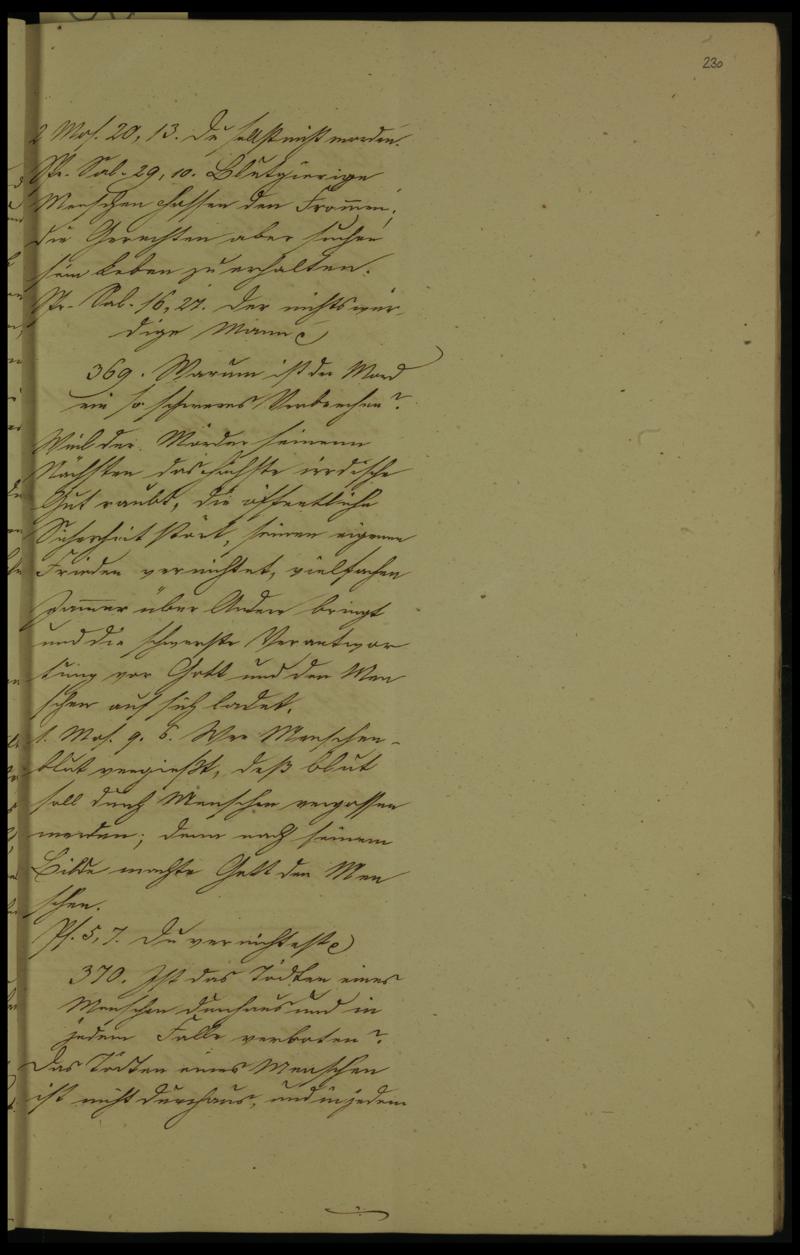 230
2 Mos. 20, 13. Du sollst nicht morden.
Spr. Sal. 29, 10. Blutgierige
Menschen hassen den From̅en;
die Gerechten aber suchen
sein Leben zu erhalten.
Spr. Sal. 16, 27. Der nichtswür-
dige Mann
369. Warum ist der Mord
ein so schweres Verbrechen?
Weil der Mörder seinem
Nächsten das höchste irrdische
Gut raubt, die öffentliche
Sicherheit stört, seinen eigenen
Frieden vernichtet, vielfachen
Jam̅er über Andere bringt
und die schwerste Verantwor
tung vor Gott und den Men
schen auf sich ladet.
1. Mos. 9. 6. Wer Menschen-
blut vergießt, deß Blut
soll durch Menschen vergossen
werden; denn nach seinem
Bilde machte Gott den Men
schen.
Ps. 5, 7. Du vernichtest
370. Ist das Tödten eines
Menschen durchaus und in
jedem Falle verboten?
Das Tödten eines Menschen
ist nicht durchaus, und in jedem